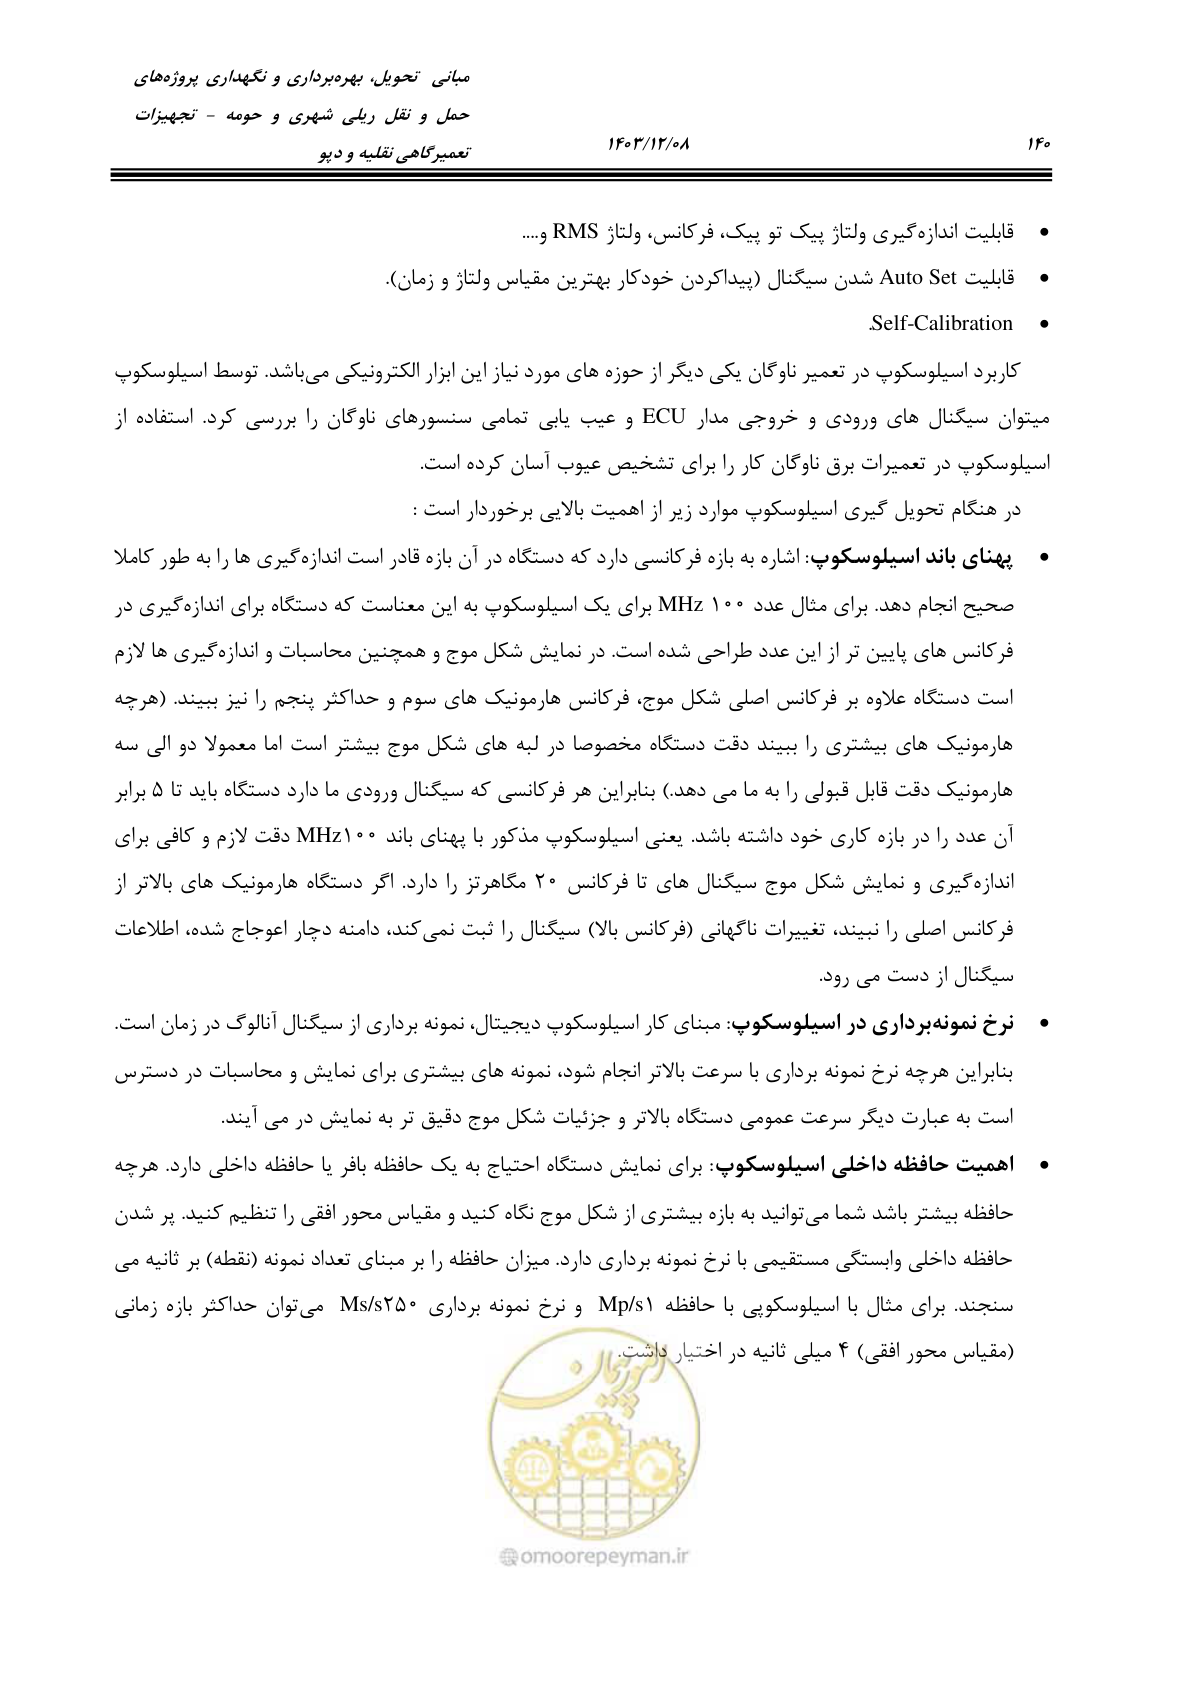 مبانی تحویل، بهره‌برداری و نگهداری پروژه‌های
حمل و نقل ریلی شهری و حومه – تجهیزات
تعمیرگاهی نقلیه و دپو
۱۴۰۳/۱۲/۰۸
۱۴۰
• قابلیت اندازه‌گیری ولتاژ پیک تو پیک، فرکانس، ولتاژ RMS و....
• قابلیت Auto Set شدن سیگنال (پیداکردن خودکار بهترین مقیاس ولتاژ و زمان).
• Self-Calibration.
کاربرد اسیلوسکوپ در تعمیر ناوگان یکی دیگر از حوزه های مورد نیاز این ابزار الکترونیکی می‌باشد. توسط اسیلوسکوپ
میتوان سیگنال های ورودی و خروجی مدار ECU و عیب یابی تمامی سنسورهای ناوگان را بررسی کرد. استفاده از
اسیلوسکوپ در تعمیرات برق ناوگان کار را برای تشخیص عیوب آسان کرده است.
در هنگام تحویل گیری اسیلوسکوپ موارد زیر از اهمیت بالایی برخوردار است :
• پهنای باند اسیلوسکوپ: اشاره به بازه فرکانسی دارد که دستگاه در آن بازه قادر است اندازه‌گیری ها را به طور کاملا
صحیح انجام دهد. برای مثال عدد ۱۰۰ MHz برای یک اسیلوسکوپ به این معناست که دستگاه برای اندازه‌گیری در
فرکانس های پایین تر از این عدد طراحی شده است. در نمایش شکل موج و همچنین محاسبات و اندازه‌گیری ها لازم
است دستگاه علاوه بر فرکانس اصلی شکل موج، فرکانس هارمونیک های سوم و حداکثر پنجم را نیز ببیند. (هرچه
هارمونیک های بیشتری را ببیند دقت دستگاه مخصوصا در لبه های شکل موج بیشتر است اما معمولا دو الی سه
هارمونیک دقت قابل قبولی را به ما می دهد.) بنابراین هر فرکانسی که سیگنال ورودی ما دارد دستگاه باید تا ۵ برابر
آن عدد را در بازه کاری خود داشته باشد. یعنی اسیلوسکوپ مذکور با پهنای باند ۱۰۰MHz دقت لازم و کافی برای
اندازه‌گیری و نمایش شکل موج سیگنال های تا فرکانس ۲۰ مگاهرتز را دارد. اگر دستگاه هارمونیک های بالاتر از
فرکانس اصلی را نبیند، تغییرات ناگهانی (فرکانس بالا) سیگنال را ثبت نمی‌کند، دامنه دچار اعوجاج شده، اطلاعات
سیگنال از دست می رود.
• نرخ نمونه‌برداری در اسیلوسکوپ: مبنای کار اسیلوسکوپ دیجیتال، نمونه برداری از سیگنال آنالوگ در زمان است.
بنابراین هرچه نرخ نمونه برداری با سرعت بالاتر انجام شود، نمونه های بیشتری برای نمایش و محاسبات در دسترس
است به عبارت دیگر سرعت عمومی دستگاه بالاتر و جزئیات شکل موج دقیق تر به نمایش در می آیند.
• اهمیت حافظه داخلی اسیلوسکوپ: برای نمایش دستگاه احتیاج به یک حافظه بافر یا حافظه داخلی دارد. هرچه
حافظه بیشتر باشد شما می‌توانید به بازه بیشتری از شکل موج نگاه کنید و مقیاس محور افقی را تنظیم کنید. پر شدن
حافظه داخلی وابستگی مستقیمی با نرخ نمونه برداری دارد. میزان حافظه را بر مبنای تعداد نمونه (نقطه) بر ثانیه می
سنجند. برای مثال با اسیلوسکوپی با حافظه Mp/s۱ و نرخ نمونه برداری Ms/s۲۵۰ می‌توان حداکثر بازه زمانی
(مقیاس محور افقی) ۴ میلی ثانیه در اختیار داشت.
امور پیمان
@omoorepeyman.ir